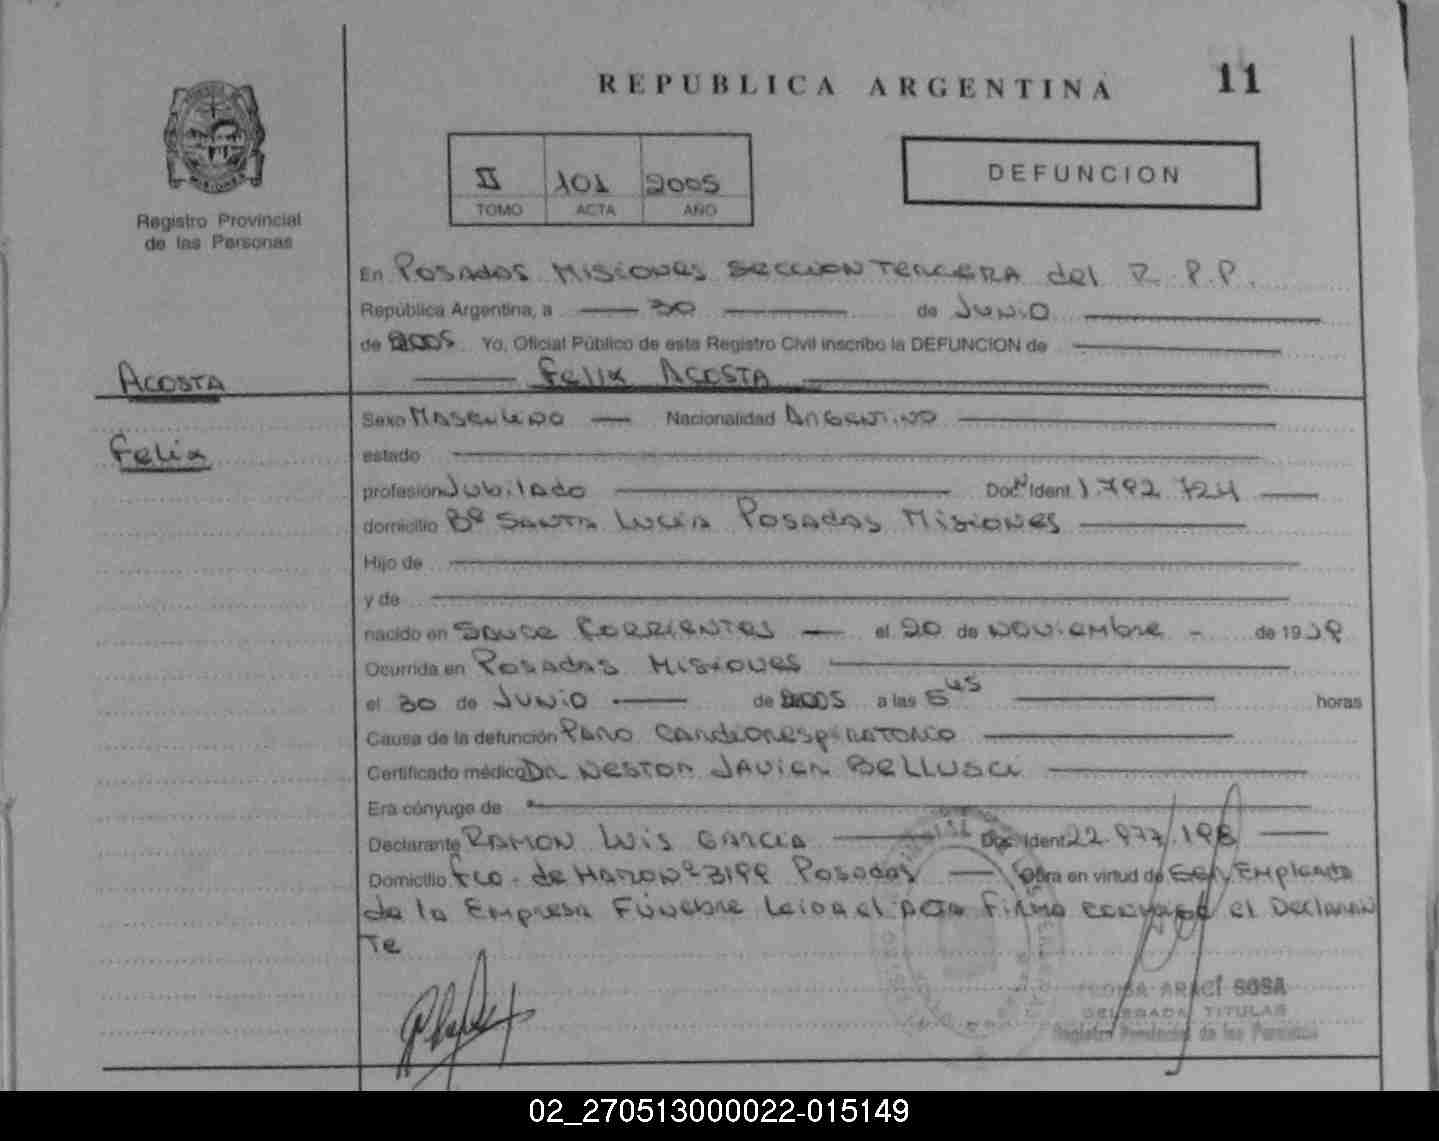 REPUBLICA ARGENTINA 11
II 101 2005
TOMO ACTA AÑO
DEFUNCION
Registro Provincial
de las Personas
En Posadas Misiones Seccion Tercera del R.P.P.
República Argentina, a 30 de Junio
de 2005 Yo, Oficial Público de este Registro Civil inscribo la DEFUNCION de
Felix Acosta
Acosta
Felix
Sexo Masculino Nacionalidad Argentino
estado
profesión Jubilado Doc. Nº Ident. 1.792.724
domicilio Bº Santa Lucia Posadas Misiones
Hijo de
y de
nacido en Sauce Corrientes el 20 de Noviembre de 19
Ocurrida en Posadas Misiones
el 30 de Junio de 2005 a las 5 45 horas
Causa de la defunción Paro Cardiorespiratorio
Certificado médico Dr Nestor Javier Bellusci
Era cónyuge de
Declarante Ramon Luis Garcia Doc. Ident. 22.977.198
Domicilio Fco. de Haro Nº 3199 Posadas Obra en virtud de Ser Empleado
de la Empresa Fúnebre Leida el Acta Firma el Declaran
te
ARACÍ SOSA
DELEGADA TITULAR
Registro Provincial de las Personas
02_270513000022-015149